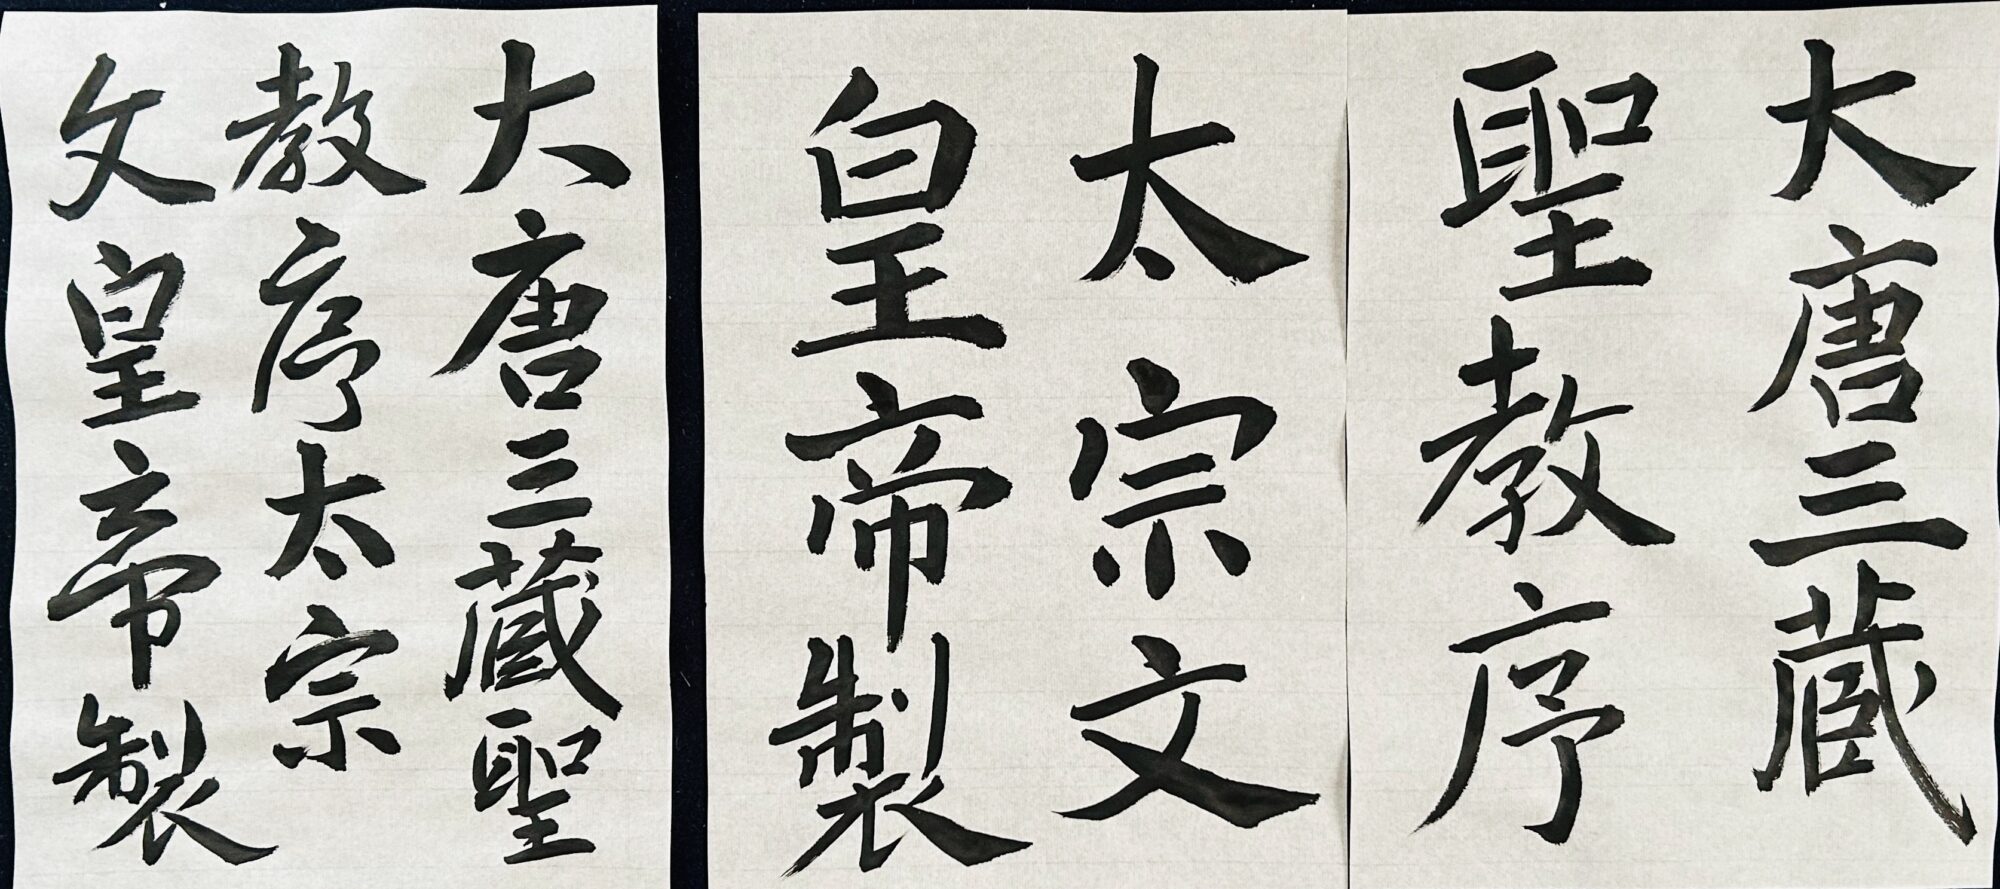 大唐三蔵
聖教序
太宗文
皇帝製
大唐三蔵聖
教序太宗
文皇帝製